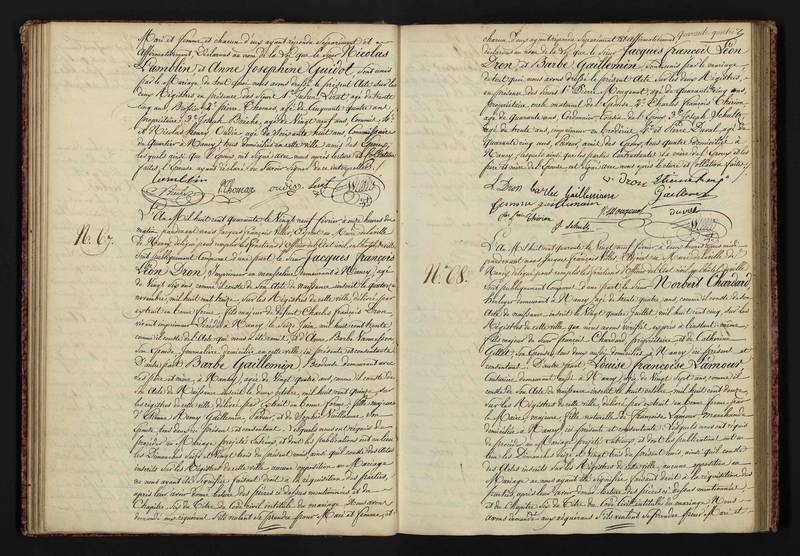 Mari et femme et chacun d'eux ayant répondu séparément et
affirmativement, Déclarons au nom de la Loi que le Sieur Nicolas
Lamblin et Anne Josephine Guidot, sont unis
par le Mariage, de tout quoi nous avons dressé le présent Acte sur les
deux Registres, en présence des Sieurs 1° Julien agé de trente
cinq ans, 2° Pierre Thomas, agé de Cinquante quatre ans
propriétaire, 3° Joseph agé de Vingt neuf ans, Commis, 4°
et Nicolas Henry Oudin, agé de Soixante huit ans, Commissaire
de Quartier à Nancy, tous domiciliés en cette ville, amis des Epoux,
lesquels ainsi que l'Epoux ont signé avec nous après lecture et collation
faites, l'Epouse ayant déclaré ne savoir signer de ce interpellée.
Lamblin
Thomas oudin
N° 67.
L'An Mil huit cent quarante le Vingt neuf février à onze heures du
matin pardevant nous Jacques François Adjoint au Maire de la ville
de Nancy délégué pour remplir les fonctions d'Officier de l'Etat civil,
Sont publiquement Comparus d'une part le Sieur Jacques françois
Léon Dron, demeurant à Nancy, agé
de Vingt six ans, comme il conste de son Acte de Naissance inscrit le quatorze
novembre, mil huit cent treize, sur les Registres de cette ville, délivré par
extrait en bonne forme, fils majeur de défunt Charles François Dron
vivant imprimeur Décédé à Nancy, le Seize Juin, mil huit cent trente
comme il conste de l'Acte qui nous a été remis, et d'Anne Barbe
Son Epouse, Journalière, domiciliée en cette ville, ici présente et consentante
D'autre part Barbe Gaillemin, Brodeuse demeurant avec
ses père et mère, à Nancy, agée de Vingt quatre ans, comme il conste de
son Acte de Naissance inscrit le deux octobre, mil huit cent quinze, sur
les registres de cette ville, délivré par Extrait en bonne forme, fille majeure
d'Etienne Gaillemin, et de Sophie Son
Epouse, tous deux ici présents et consentants. Lesquels nous ont requis de
procéder au Mariage projeté entr'eux, et dont les publications ont eu lieu
les Dimanches Seize et Vingt trois du présent mois, ainsi qu'il conste des états
inscrits sur les Registres de cette ville, aucune opposition au Mariage
ne nous ayant été signifiée, faisant droit à la réquisition des parties,
après leur avoir donné lecture des pièces ci dessus mentionnées et du
Chapitre six du Titre du Code Civil intitulé du mariage. Nous avons
demandé aux requérans s'ils veulent se prendre pour Mari et femme, et
quarante quatre
chacun d'eux ayant répondu séparément et affirmativement
déclarons au nom de la Loi que le Sieur Jacques françois Léon
Dron, et Barbe Gaillemin, sont unis par le mariage,
de tout quoi nous avons dressé le présent Acte sur les deux Registres,
en présence des Sieurs 1° Pierre Mougenot, agé de quarante cinq ans,
propriétaire, oncle maternel de l'Epouse, 2° Charles François Thirion,
agé de quarante ans, Cordonnier, Cousin de l'Epoux 3° Joseph Schultz,
agé de trente ans, imprimeur en Broderie, 4° et Pierre Duval, agé de
quarante cinq ans, amis des Epoux, tous quatre domiciliés à
Nancy, lesquels ainsi que les parties Contractantes, la mère de l'Epoux et les
père et mère de l'Epouse, ont signé avec nous après lecture et collation faites.
L Dron barbe Gaillemin v. Dron Etienne
femme guillemin Gaillemin
Thirion Mougenot duval
J. Schultz
N° 68.
L'An Mil huit cent quarante le Vingt neuf février à deux heures après midi
pardevant nous Jacques François Adjoint au Maire de la ville de
Nancy délégué pour remplir les fonctions d'Officier de l'Etat civil
Sont publiquement Comparus, d'une part le Sieur Norbert Chardard
Boulanger demeurant à Nancy, agé de trente quatre ans, comme il conste de son
Acte de naissance inscrit le Vingt quatre Juillet, mil huit cent cinq, sur les
Registres de cette ville, que nous avons vérifié exprès à l'instant même,
fils majeur de François Chardard propriétaire et de Catherine
Gillet, son Epouse, tous deux aussi domiciliés à Nancy, ici présents et
consentants. D'autre part, Louise françoise Lamour
Couturière, demeurant aussi à Nancy, agée de Vingt Sept ans, comme il
conste de son Acte de Naissance inscrit le huit octobre, mil huit cent douze
sur les Registres de cette ville, délivré par extrait en bonne forme par
le Maire, majeure fille naturelle de Françoise Lamour, marchande
domiciliée à Nancy, ici présente et consentante. Lesquels nous ont requis
de procéder au Mariage projeté entr'eux, et dont les publications ont eu
lieu les Dimanches Seize et Vingt trois du présent mois, ainsi qu'il conste
des états inscrits sur les Registres de cette ville, aucune opposition au
Mariage ne nous ayant été signifiée, faisant droit à la réquisition des
parties, après leur avoir donné lecture des pièces ci dessus mentionnées,
et du Chapitre six du Titre du Code Civil intitulé du mariage. Nous
avons demandé aux requérans s'ils veulent se prendre pour Mari et